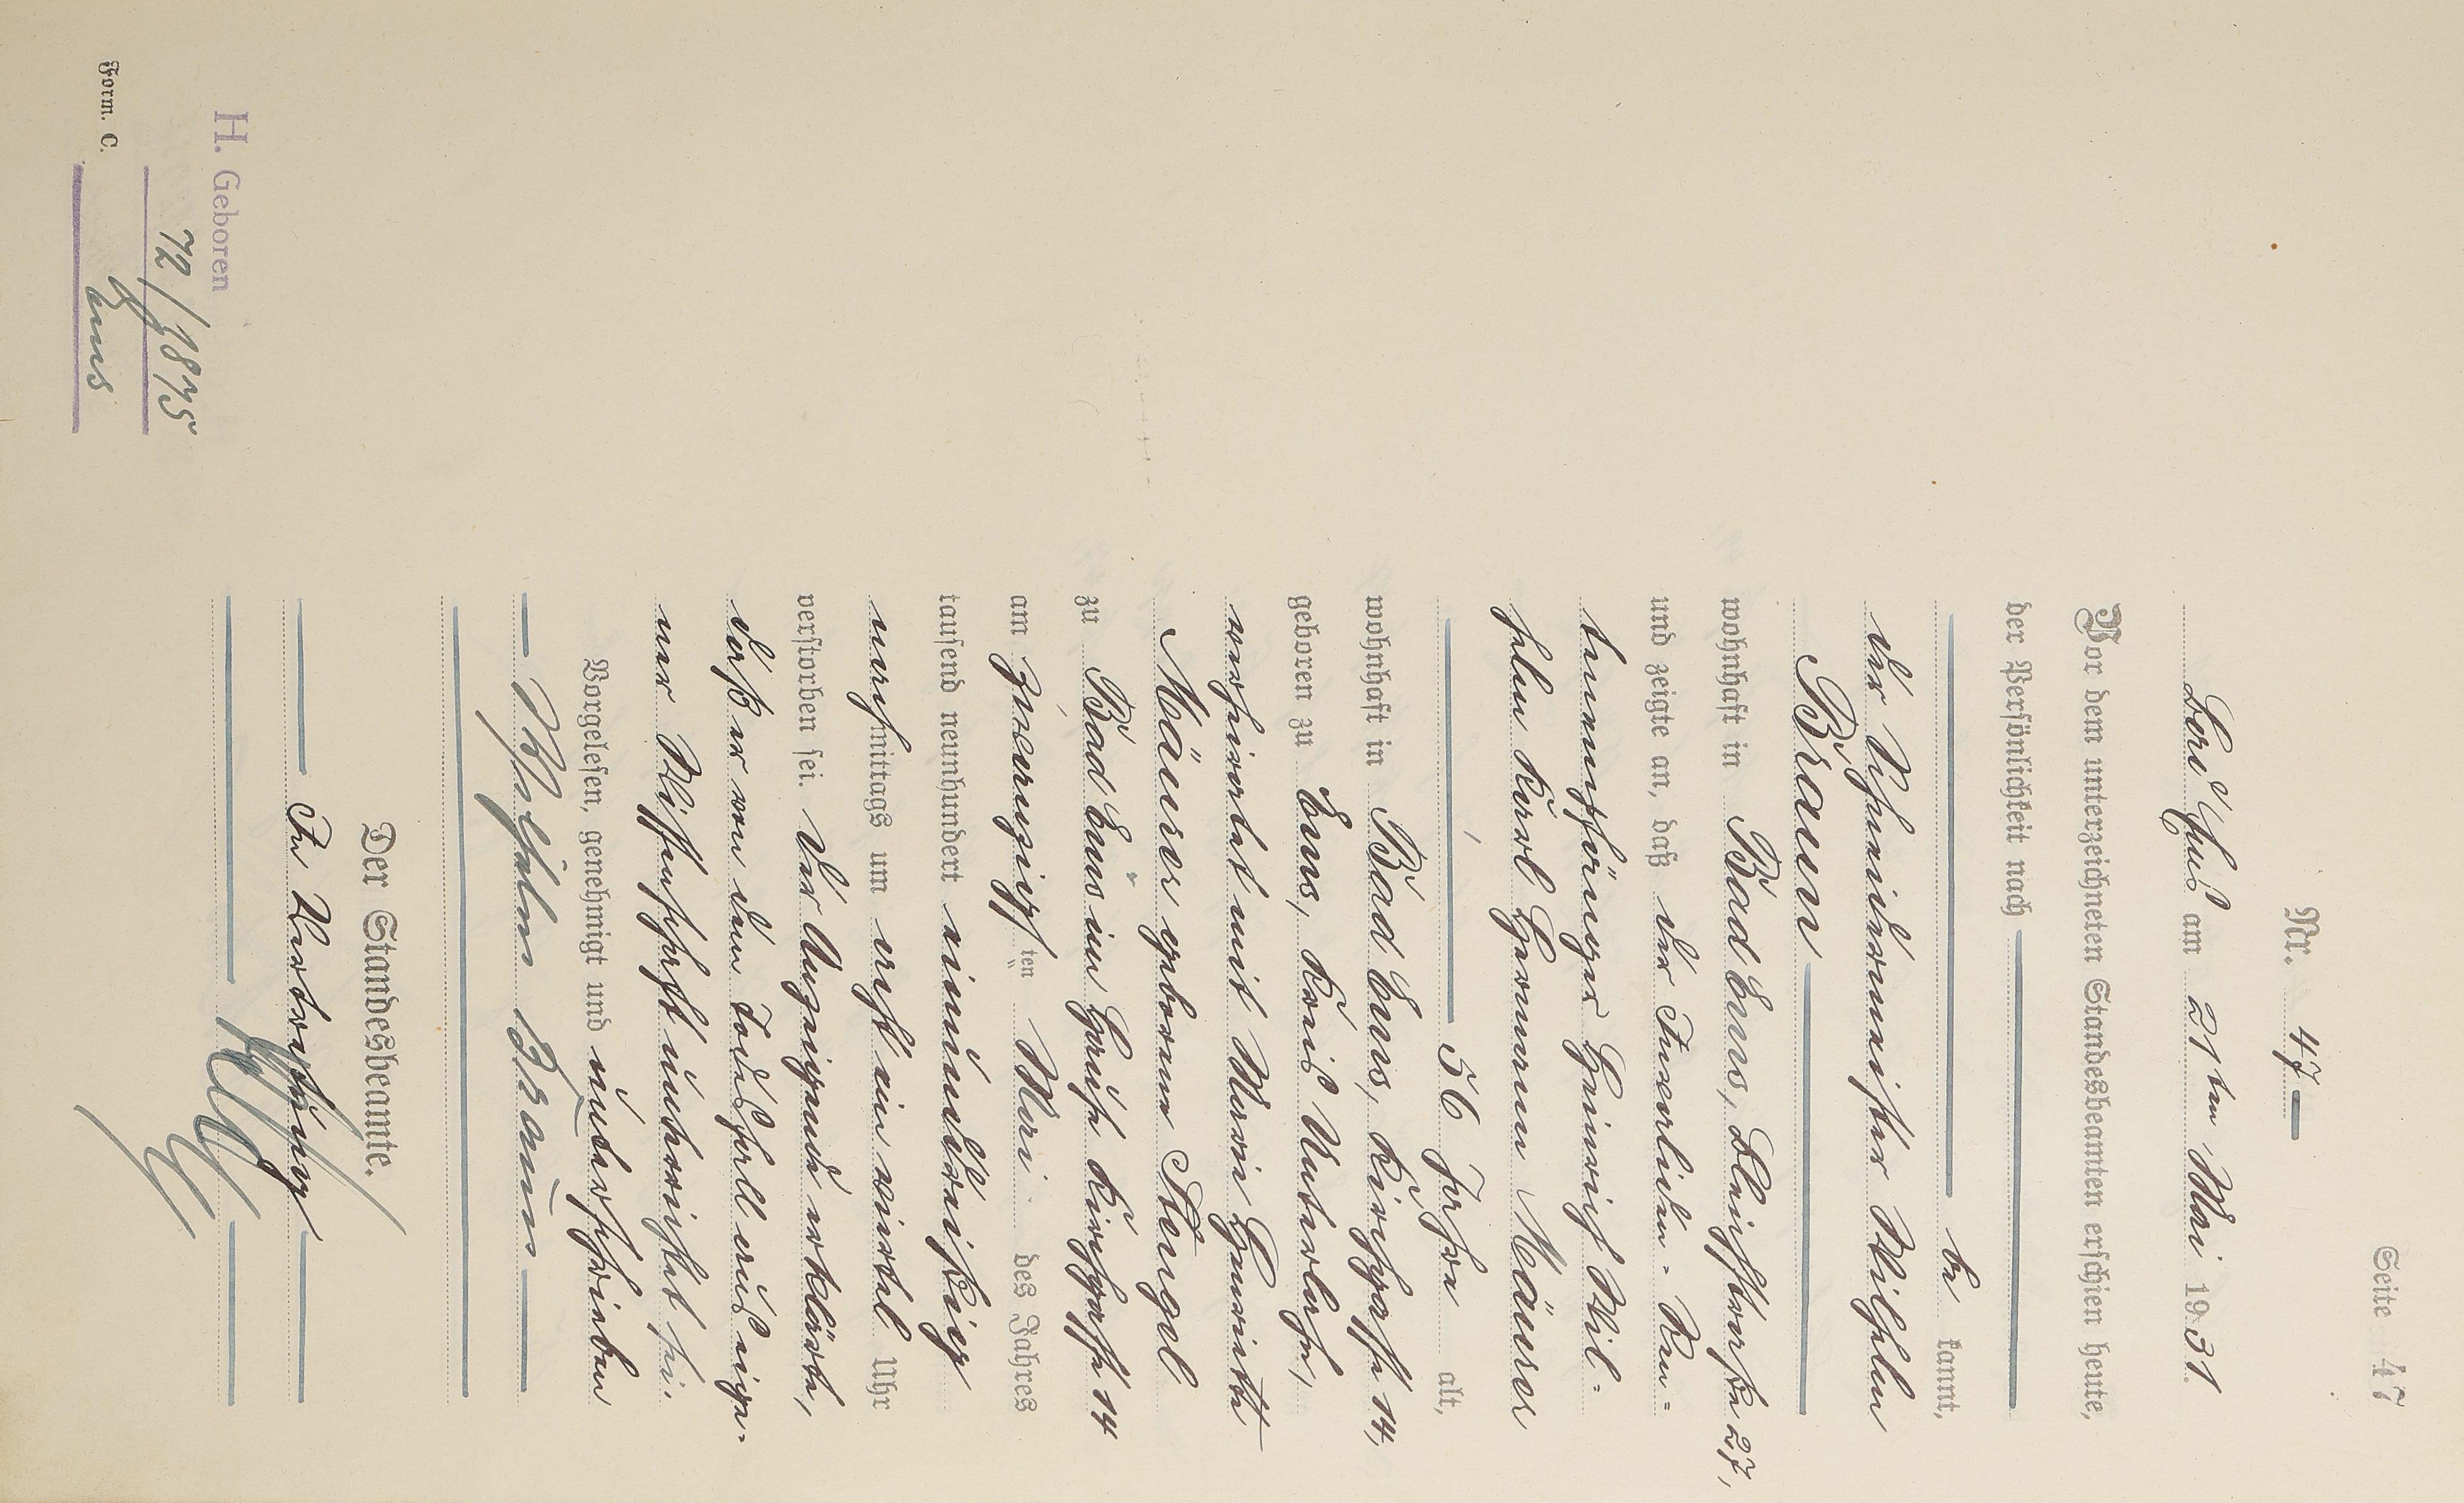 Seite 47
Nr. 47
Bad Ems am 21ten Mai 1931.
Vor dem unterzeichneten Standesbeamten erschien heute,
der Persönlichkeit nach
be kannt,
der Schneidermeister Wilhelm
Braun
wohnhaft in Bad Ems, Bleichstraße 27,
und zeigte an, daß der Invaliden-Ren-
tenempfänger Heinrich Wil-
helm Karl Hermann Mäurer
56 Jahre alt,
wohnhaft in Bad Ems, Kirchgasse 14,
geboren zu Ems, Kreis Unterlahn,
verheiratet mit Maria Henriette
Mäurer geborene Stengel
zu Bad Ems im Hause Kirchgasse 14
am zwanzigsten Mai des Jahres
tausend neunhundert einunddreißig
nachmittags um acht ein viertel Uhr
verstorben sei. Der Anzeigende erklärte,
daß er von dem Todesfall aus eige-
ner Wissenschaft unterrichtet sei.
Vorgelesen, genehmigt und unterschrieben
Wilhelm Braun
Der Standesbeamte.
In Vertretung
H. Geboren
72/1875
Ems
Form. C.